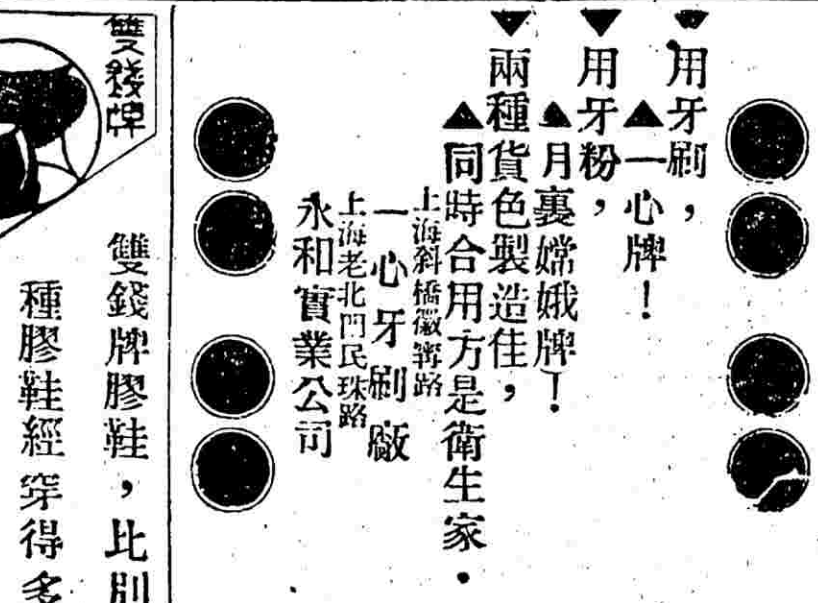 ▼用牙刷，
▲一心牌！
▼用牙粉，
▲月裏嫦娥牌！
▼兩種貨色製造佳，
▲同時合用方是衛生家．
上海斜橋徽寧路
一心牙刷廠
上海老北門民珠路
永和實業公司
雙錢牌
雙錢牌膠鞋，比別
種膠鞋經穿得多